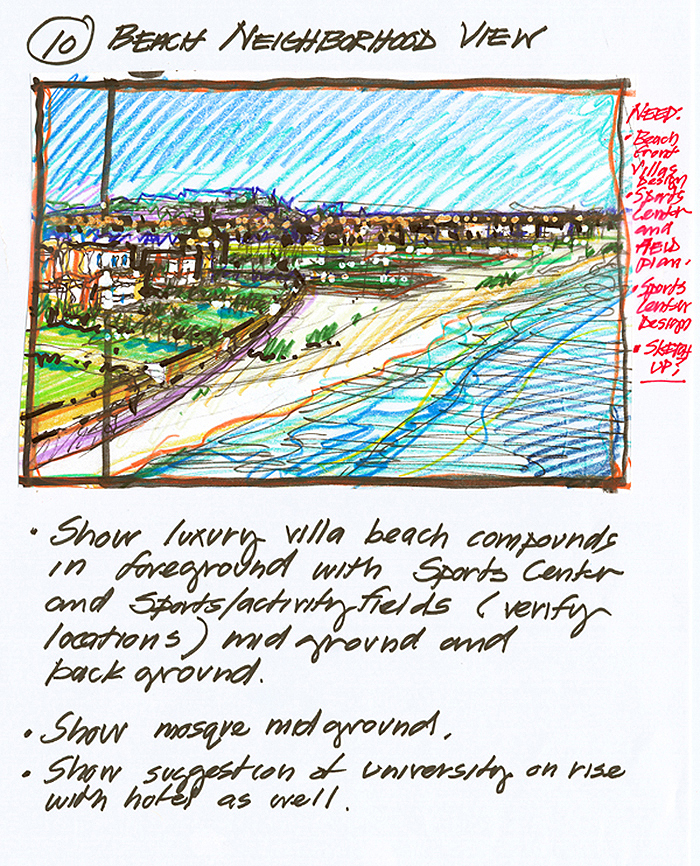 10 BEACH NEIGHBORHOOD VIEW
NEED:
• Beach
Front
Villas
Design
• Sports
Center
and
FIELD
plan.
• Sports
Center
Design
• SKETCH
UP?
• Show luxury villa beach compounds
in foreground with Sports Center
and Sports/activity fields (verify
locations) mid ground and
back ground.
• Show mosque mid ground.
• Show suggestion of university on rise
with hotel as well.